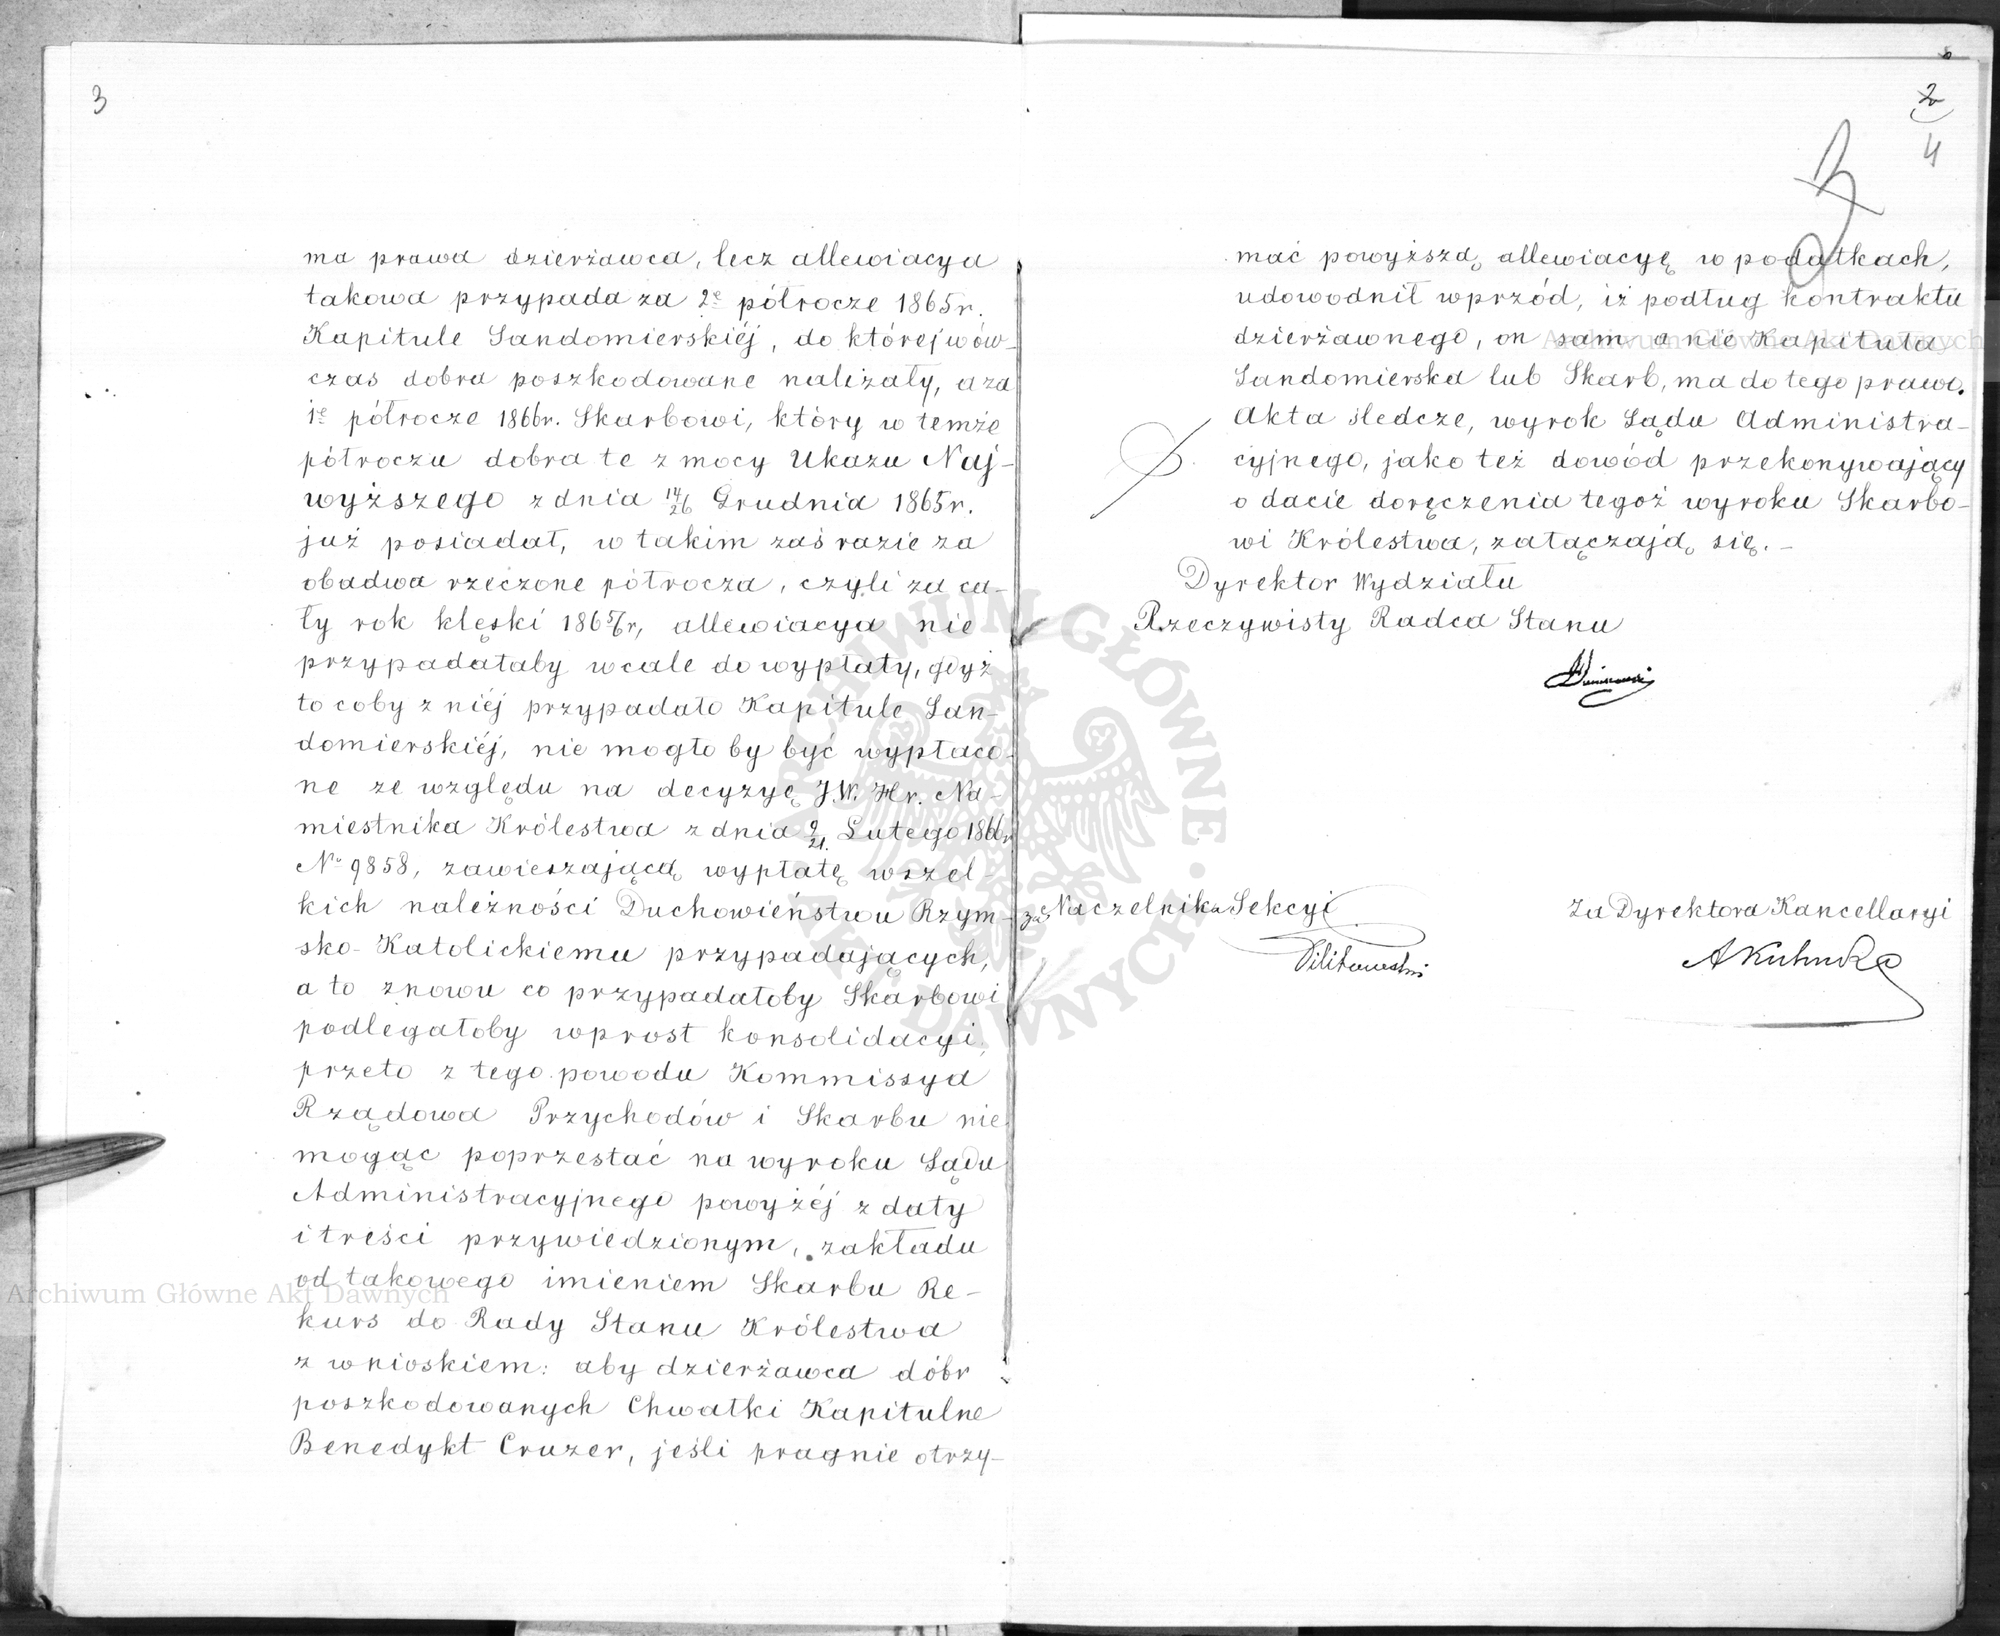 3
ma prawa dzierżawca, lecz allewiacya
takowa przypada za 2e półrocze 1865r.
Kapitule Sandomierskiéj, do którejwów-
czas dobra poszkodowane należały, a za
1e półrocze 1866r. Skarbowi, który w temże
półroczu dobra te z mocy Ukazu Naj-
wyższego z dnia 14/26 Grudnia 1865r.
już posiadał, w takim zaś razie za
obadwa rzeczone półrocza, czyli za ca-
ły rok klęski 1865/6r, allewiacya nie
przypadałaby wcale do wypłaty, gdyż
to coby z niéj przypadało Kapitule San-
domierskiéj, nie mogło by być wypłaco-
ne ze względu na decyzyę J.W. Hr. Na-
miestnika Królestwa z dnia 9/21 Lutego 1866r
No 9858, zawieszającą wypłatę wszel-
kich należności Duchowieństwu Rzym-
sko-Katolickiemu przypadających,
a to znowu co przypadałoby Skarbowi
podlegałoby wprost konsolidacyi,
przeto z tego powodu Kommissya
Rządowa Przychodów i Skarbu nie
mogąc poprzestać na wyroku Sądu
Administracyjnego powyżéj z daty
i treści przywiedzionym, zakłada
od takowego imieniem Skarbu Re-
kurs do Rady Stanu Królestwa
z wnioskiem: aby dzierżawca dóbr
poszkodowanych Chwałki Kapitulne
Benedykt Cruzer, jeśli pragnie otrzy-
2
4
3
mać powyższą allewiacyę w podatkach,
udowodnił wprzód, iż podług kontraktu
dzierżawnego, on sam a nie Kapituła
Sandomierska lub Skarb, ma do tego prawo.
Akta śledcze, wyrok Sądu Administra-
cyjnego, jako też dowód przekonywający
o dacie doręczenia tegoż wyroku Skarbo-
wi Królestwa, załączają się.-
Dyrektor Wydziału
Rzeczywisty Radca Stanu
za Naczelnika Sekcyi
Za Dyrektora Kancellaryi
Archiwum Główne Akt Dawnych
Archiwum Główne Akt Dawnych
ARCHIWUM GŁÓWNE AKT DAWNYCH